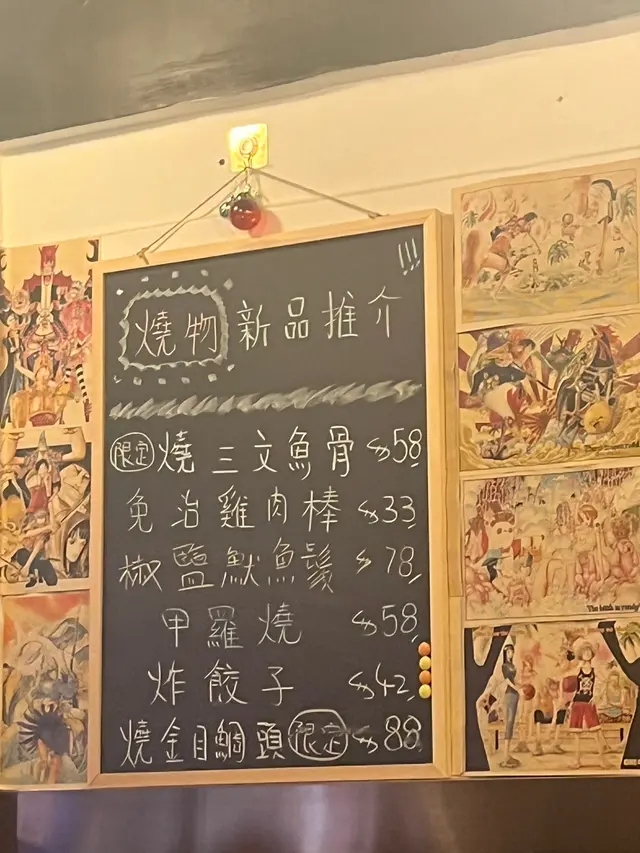 燒物 新品推介!!!
限定 燒三文魚骨 $58
免治雞肉棒 $33
椒鹽魷魚鬚 $78
甲羅燒 $58
炸餃子 $42
燒金目鯛頭 限定 $88